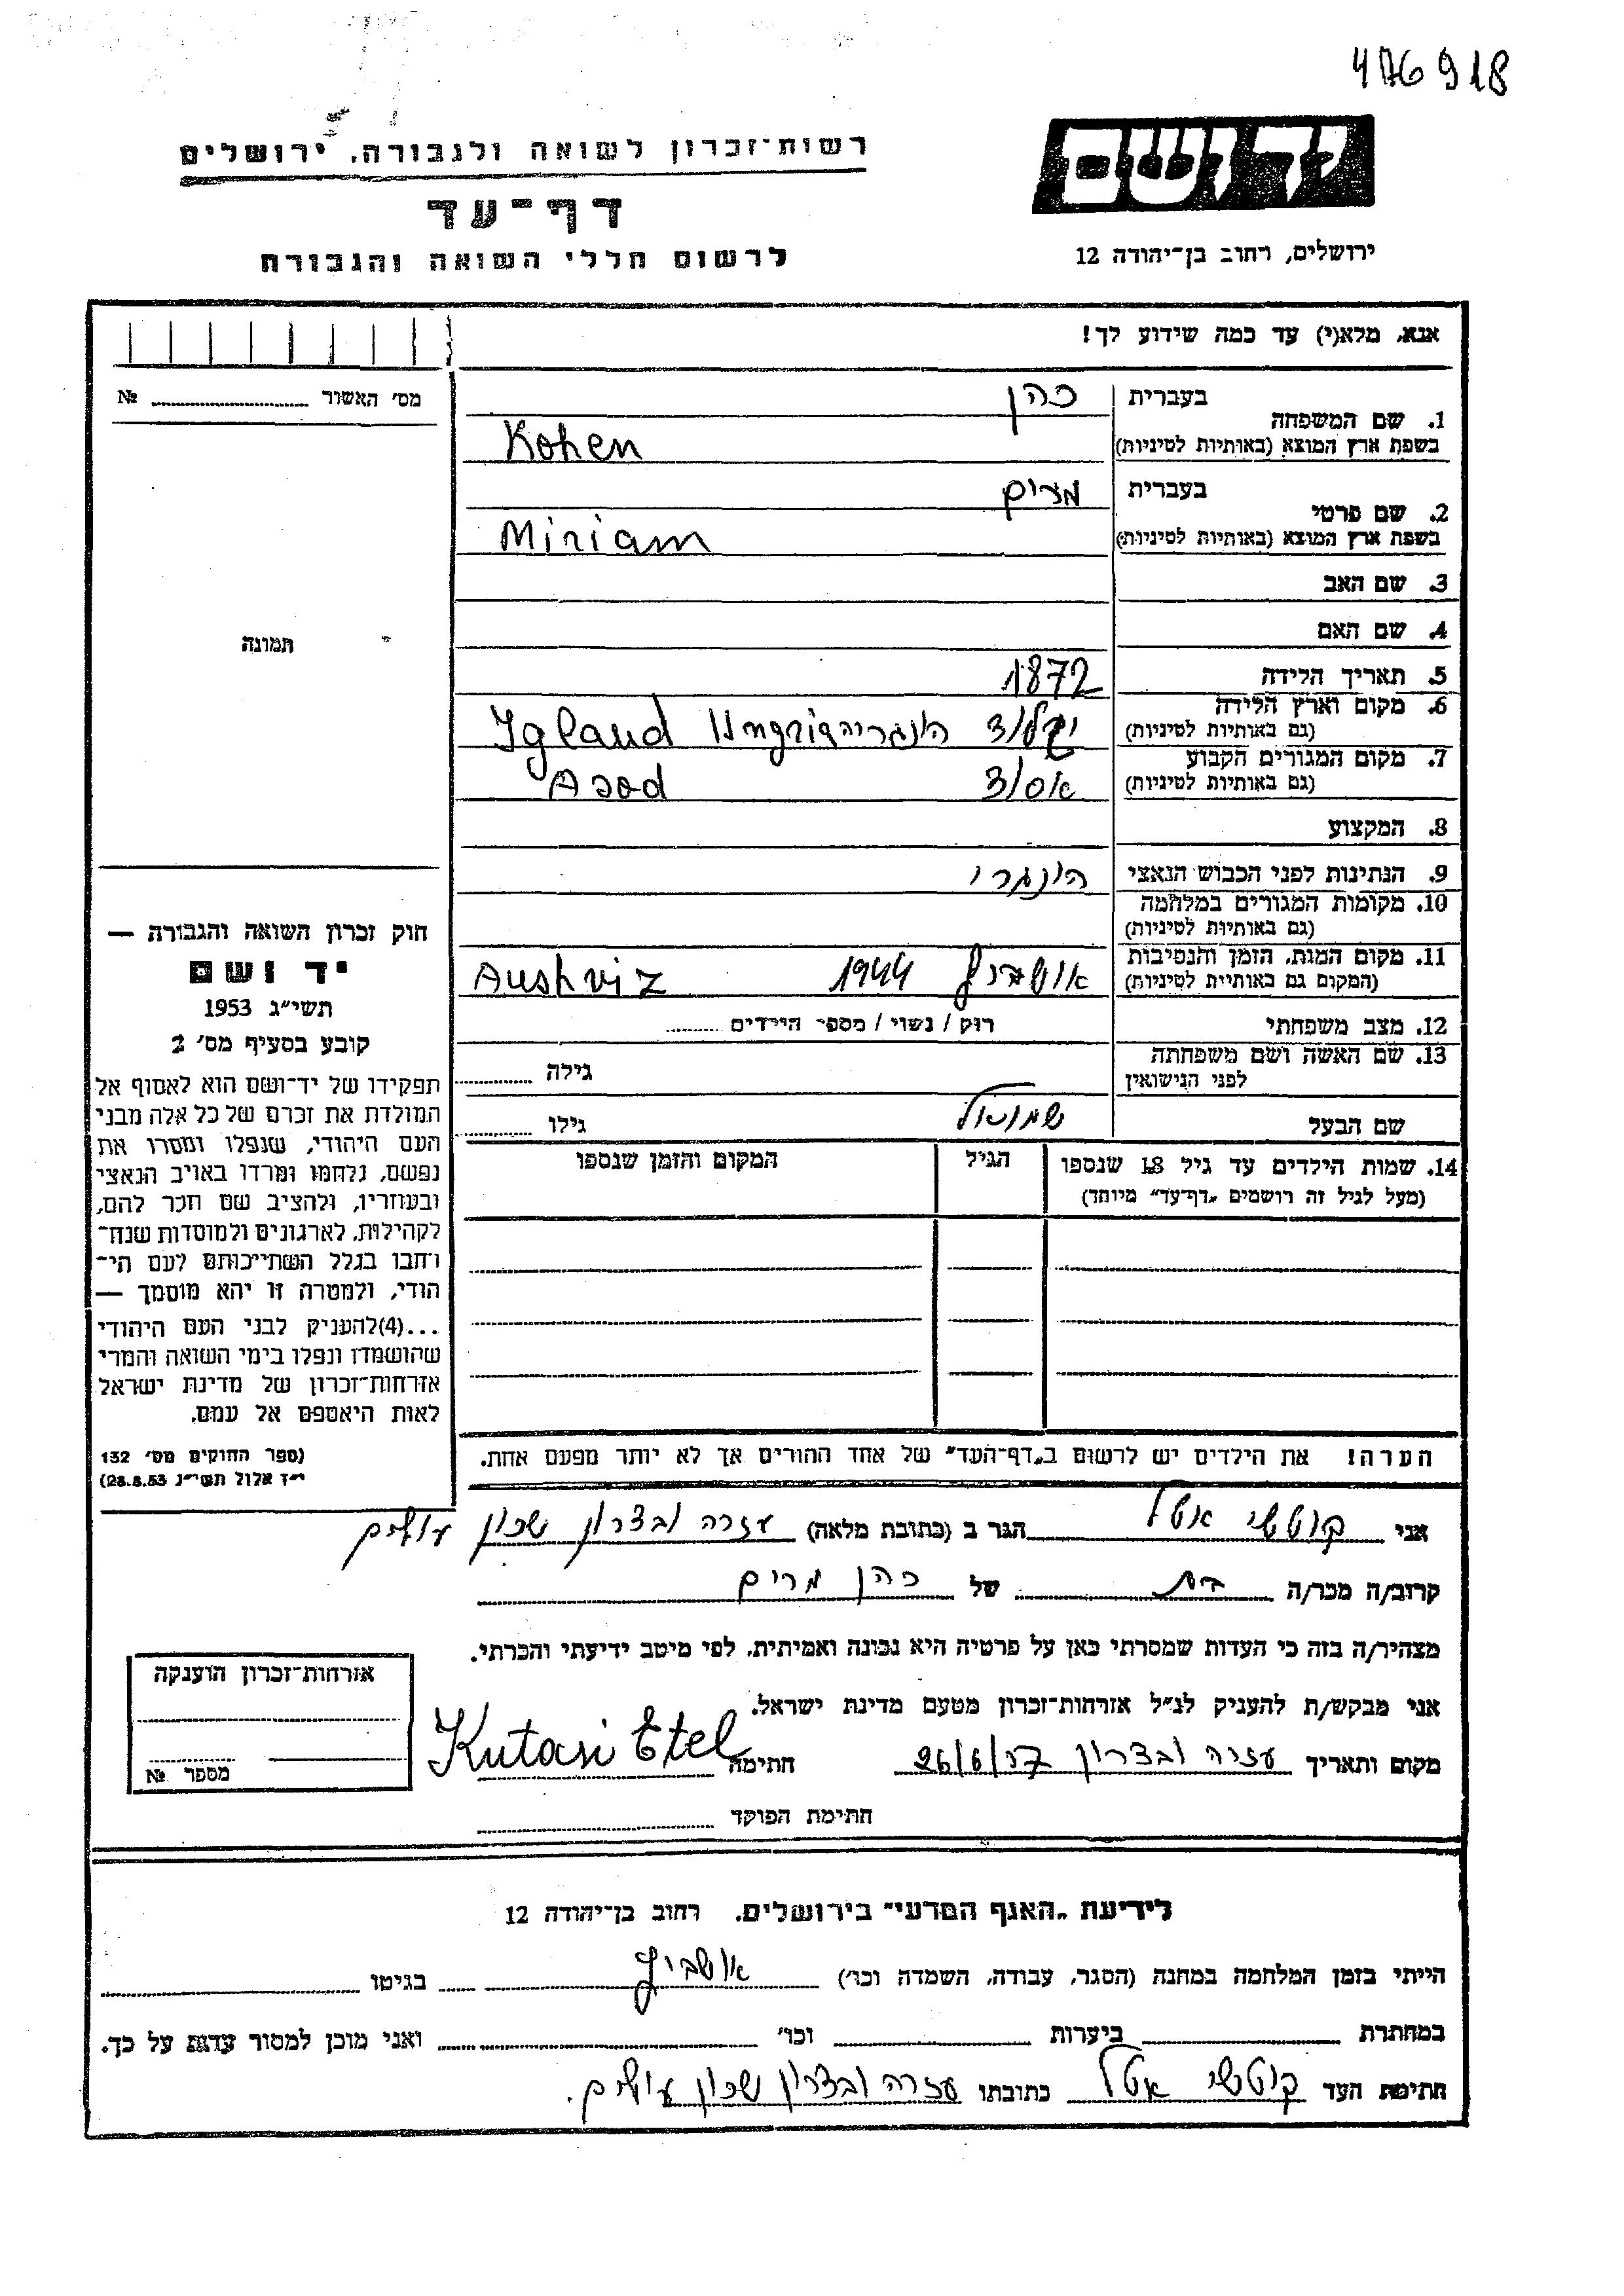 476918
יד ושם
רשות־זכרון לשואה ולגבורה, ירושלים
דף־עד
לרשום חללי השואה והגבורה
ירושלים, רחוב בן־יהודה 12
אנא, מלא(י) עד כמה שידוע לך!
מס' האשור № ........
תמונה
בעברית כהן
1. שם המשפחה
בשפת ארץ המוצא (באותיות לטיניות) Kohen
בעברית מרים
2. שם פרטי
בשפת ארץ המוצא (באותיות לטיניות) Miriam
3. שם האב
4. שם האם
5. תאריך הלידה 1872
6. מקום וארץ הלידה
(גם באותיות לטיניות) Iglaud Ungria
7. מקום המגורים הקבוע
(גם באותיות לטיניות) אסוד Asod
8. המקצוע
9. הנתינות לפני הכבוש הנאצי הונגרי
10. מקומות המגורים במלחמה
(גם באותיות לטיניות)
11. מקום המות, הזמן והנסיבות
(המקום גם באותיות לטיניות) אושביץ 1944 Aushviz
12. מצב משפחתי רוק / נשוי / מספר הילדים ........
13. שם האשה ושם משפחתה
לפני הנישואין גילה ........
שם הבעל שמואל גילו ........
14. שמות הילדים עד גיל 18 שנספו
(מעל לגיל זה רושמים „דף־עד" מיוחד)
הגיל
המקום והזמן שנספו
הערה! את הילדים יש לרשום ב„דף־העד" של אחד ההורים אך לא יותר מפעם אחת.
חוק זכרון השואה והגבורה —
יד ושם
תשי"ג 1953
קובע בסעיף מס' 2
תפקידו של יד־ושם הוא לאסוף אל
המולדת את זכרם של כל אלה מבני
העם היהודי, שנפלו ומסרו את
נפשם, נלחמו ומרדו באויב הנאצי
ובעוזריו, ולהציב שם וזכר להם,
לקהילות, לארגונים ולמוסדות שנח־
רבו בגלל השתייכותם לעם הי־
הודי, ולמטרה זו יהא מוסמך —
...(4)להעניק לבני העם היהודי
שהושמדו ונפלו בימי השואה והמרי
אזרחות־זכרון של מדינת ישראל
לאות היאספם אל עמם.
(ספר החוקים מס' 132
י"ז אלול תשי"ג 28.8.53)
אני קוטשי אטל הגר ב (כתובת מלאה) עזרה ובצרון שכון עולים
קרוב/ה מכר/ה בת של כהן מרים
מצהיר/ה בזה כי העדות שמסרתי כאן על פרטיה היא נכונה ואמיתית, לפי מיטב ידיעתי והכרתי.
אני מבקש/ת להעניק לנ"ל אזרחות־זכרון מטעם מדינת ישראל.
מקום ותאריך עזרה ובצרון 26/6/57 חתימה Kutasi Etel
חתימת הפוקד
אזרחות־זכרון הוענקה
מספר №
לידיעת „האגף המדעי" בירושלים, רחוב בן־יהודה 12
הייתי בזמן המלחמה במחנה (הסגר, עבודה, השמדה וכו') אושביץ בגיטו
במחתרת ביערות וכו' ואני מוכן למסור עדות על כך.
חתימת העד קוטשי אטל כתובתו עזרה ובצרון שכון עולים.